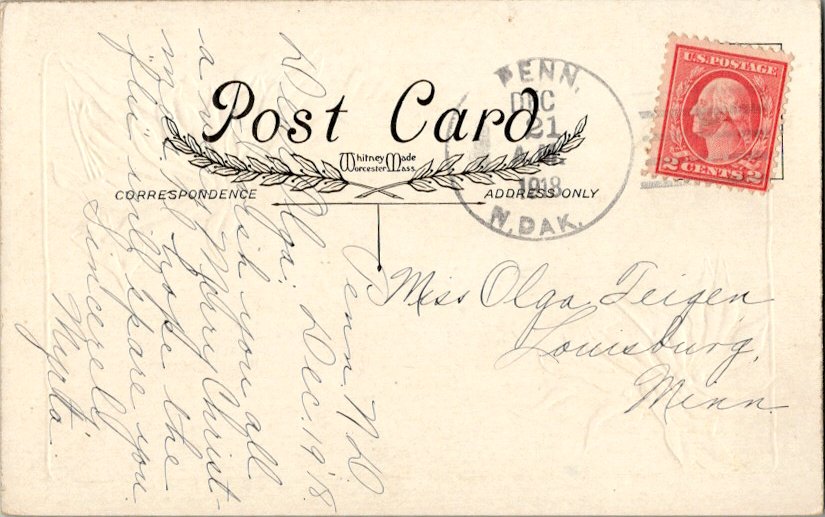 Post Card
Whitney Made
Worcester Mass.
CORRESPONDENCE
ADDRESS ONLY
PENN,
DEC
21
A.M.
1918
N. DAK.
U.S. POSTAGE
2 CENTS 2
Miss Olga Teigen
Louisburg,
Minn.
Penn N D
Dec. 19 '18.
Dear Olga:
I wish you all
a Merry Christ-
mas. I hope the
"flu" will spare you
Sincerely
Myrta.